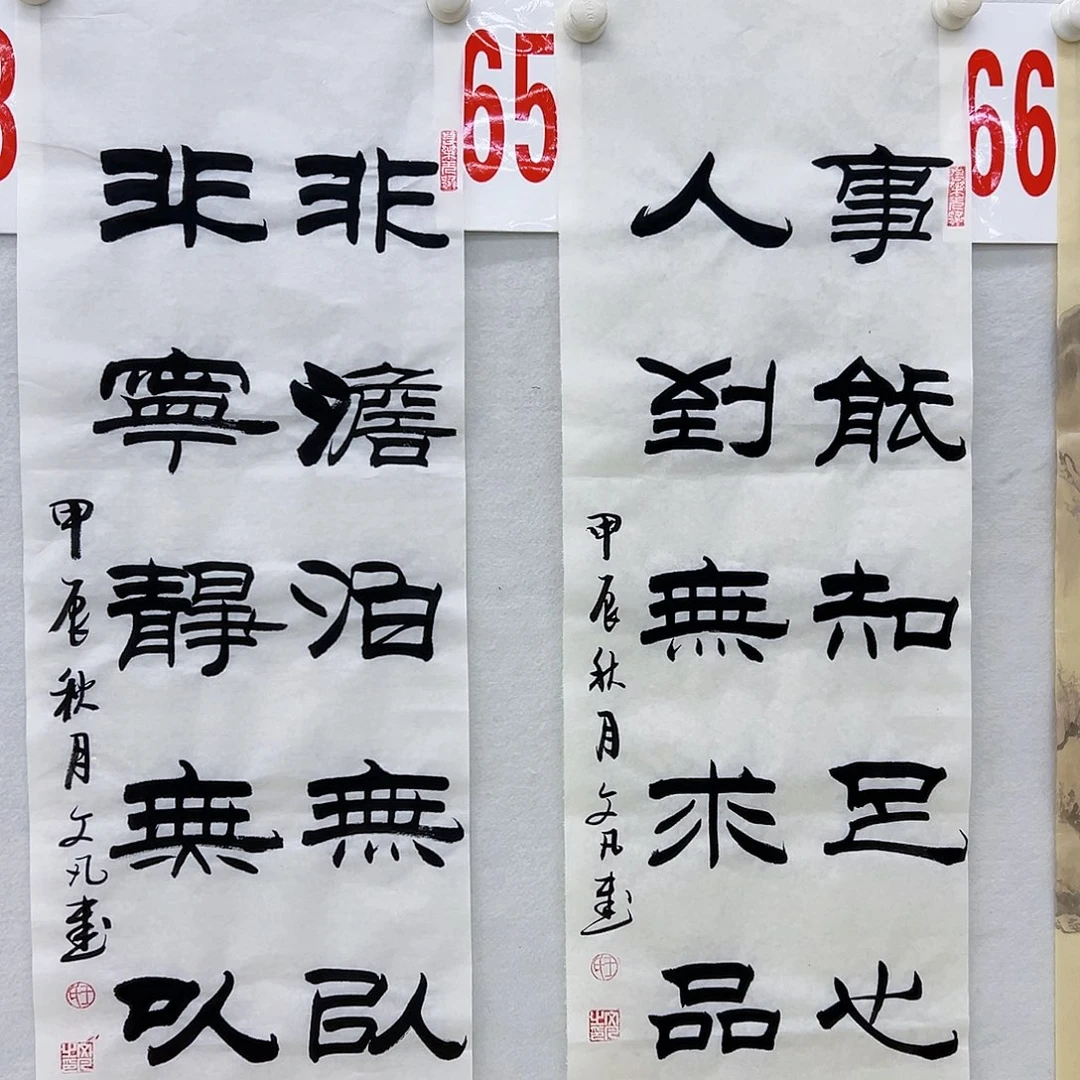 65
非澹泊無以
非寧靜無以
甲辰秋月文凡書
66
事能知足心
人到無求品
甲辰秋月文凡書